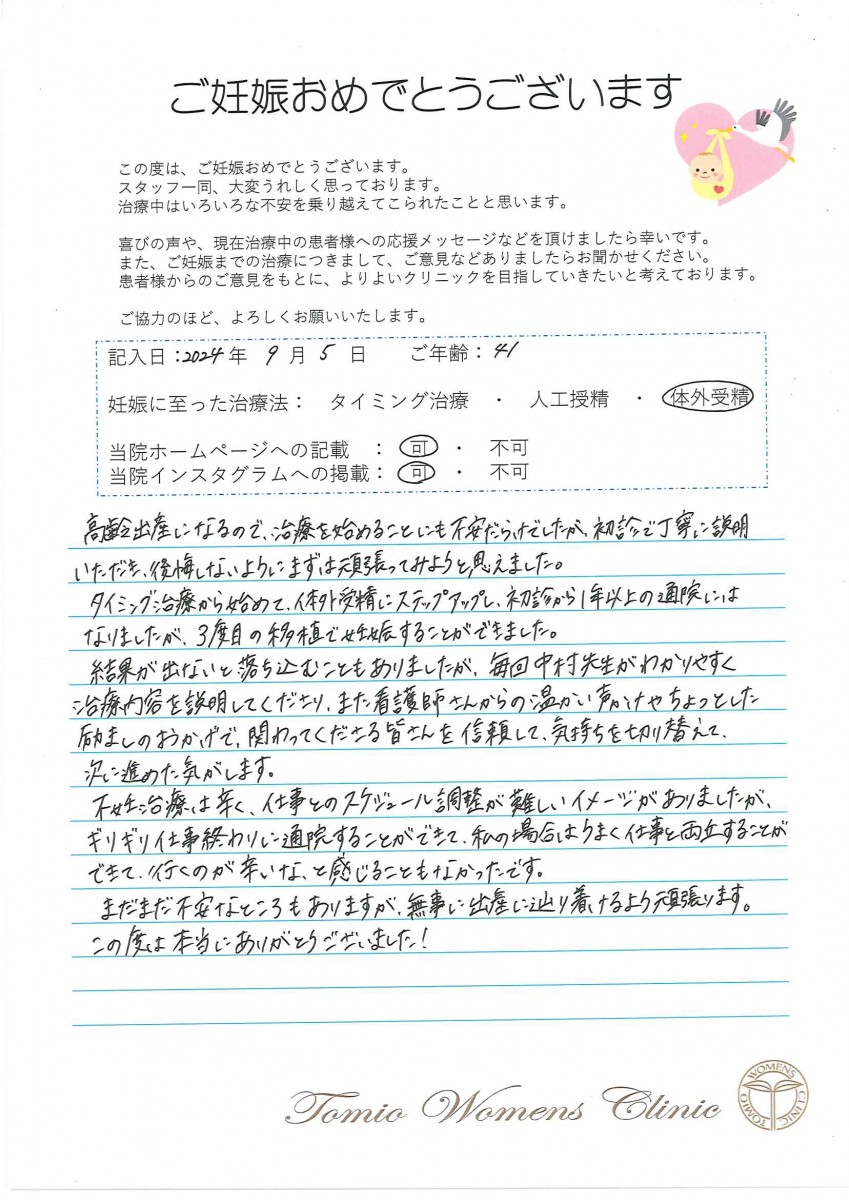 ご妊娠おめでとうございます
この度は、ご妊娠おめでとうございます。
スタッフ一同、大変うれしく思っております。
治療中はいろいろな不安を乗り越えてこられたことと思います。
喜びの声や、現在治療中の患者様への応援メッセージなどを頂けましたら幸いです。
また、ご妊娠までの治療につきまして、ご意見などありましたらお聞かせください。
患者様からのご意見をもとに、よりよいクリニックを目指していきたいと考えております。
ご協力のほど、よろしくお願いいたします。
記入日：2024年 9月 5日 ご年齢：41
妊娠に至った治療法： タイミング治療 ・ 人工授精 ・ 体外受精
当院ホームページへの記載 ： 可 ・ 不可
当院インスタグラムへの掲載： 可 ・ 不可
高齢出産になるので、治療を始めることにも不安だらけでしたが、初診で丁寧に説明
いただき、後悔しないようにまずは頑張ってみようと思えました。
タイミング治療から始めて、体外受精にステップアップし、初診から1年以上の通院には
なりましたが、3度目の移植で妊娠することができました。
結果が出ないと落ち込むこともありましたが、毎回中村先生がわかりやすく
治療内容を説明してくださり、また看護師さんからの温かい声かけやちょっとした
励ましのおかげで、関わってくださる皆さんを信頼して、気持ちを切り替えて、
次に進めた気がします。
不妊治療は辛く、仕事とのスケジュール調整が難しいイメージがありましたが、
ギリギリ仕事終わりに通院することができて、私の場合はうまく仕事と両立することが
できて、行くのが辛いな、と感じることもなかったです。
まだまだ不安なところもありますが、無事に出産に辿り着けるよう頑張ります。
この度は本当にありがとうございました!
Tomio Womens Clinic
TOMIO WOMENS CLINIC